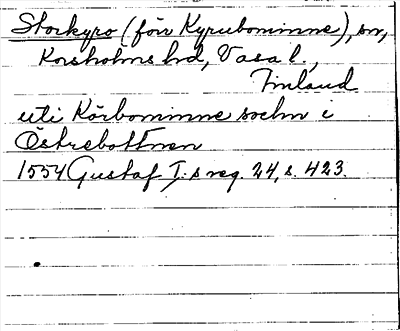 Storkyro (förr Kyrubominne), sn,
Korsholms hd, Vasa l.,
Finland
uti Körbominne sochn i
Östrebottnen
1554 Gustaf I:s reg. 24, s. 423.